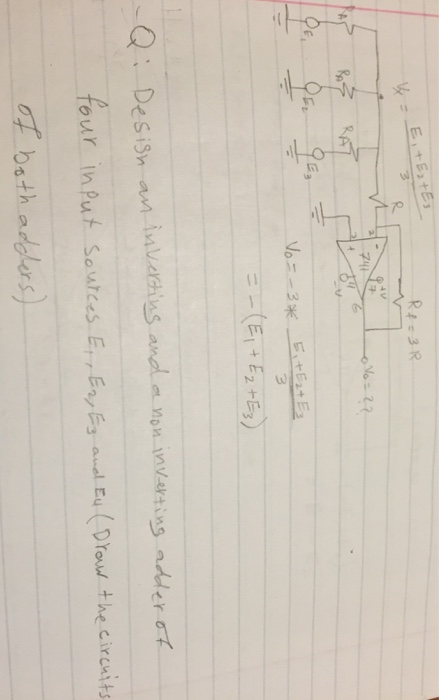 Vx = E1+E2+E3 / 3
Rf = 3R
R
RA
RA
RA
2 -
741
7 +V
3 +
4 -V
6
Vo = ??
E1
E2
E3
Vo = -3* E1+E2+E3 / 3
= - (E1+E2+E3)
- Q: Design an inverting and a non inverting adder of
four input sources E1, E2, E3 and E4 (Draw the circuits
of both adders)